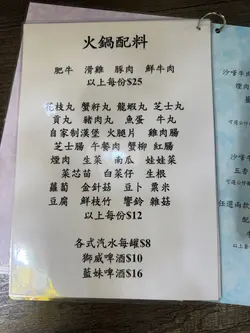 火鍋配料
肥牛 滑雞 豚肉 鮮牛肉
以上每份$25
花枝丸 蟹籽丸 龍蝦丸 芝士丸
貢丸 豬肉丸 魚蛋 牛丸
自家制漢堡 火腿片 雞肉腸
芝士腸 午餐肉 蟹柳 紅腸
煙肉 生菜 南瓜 娃娃菜
菜芯苗 白菜仔 生根
蘿蔔 金針菇 豆卜 粟米
豆腐 鮮枝竹 響鈴 雜菇
以上每份$12
各式汽水每罐$8
獅威啤酒$10
藍妹啤酒$16
沙嗲牛